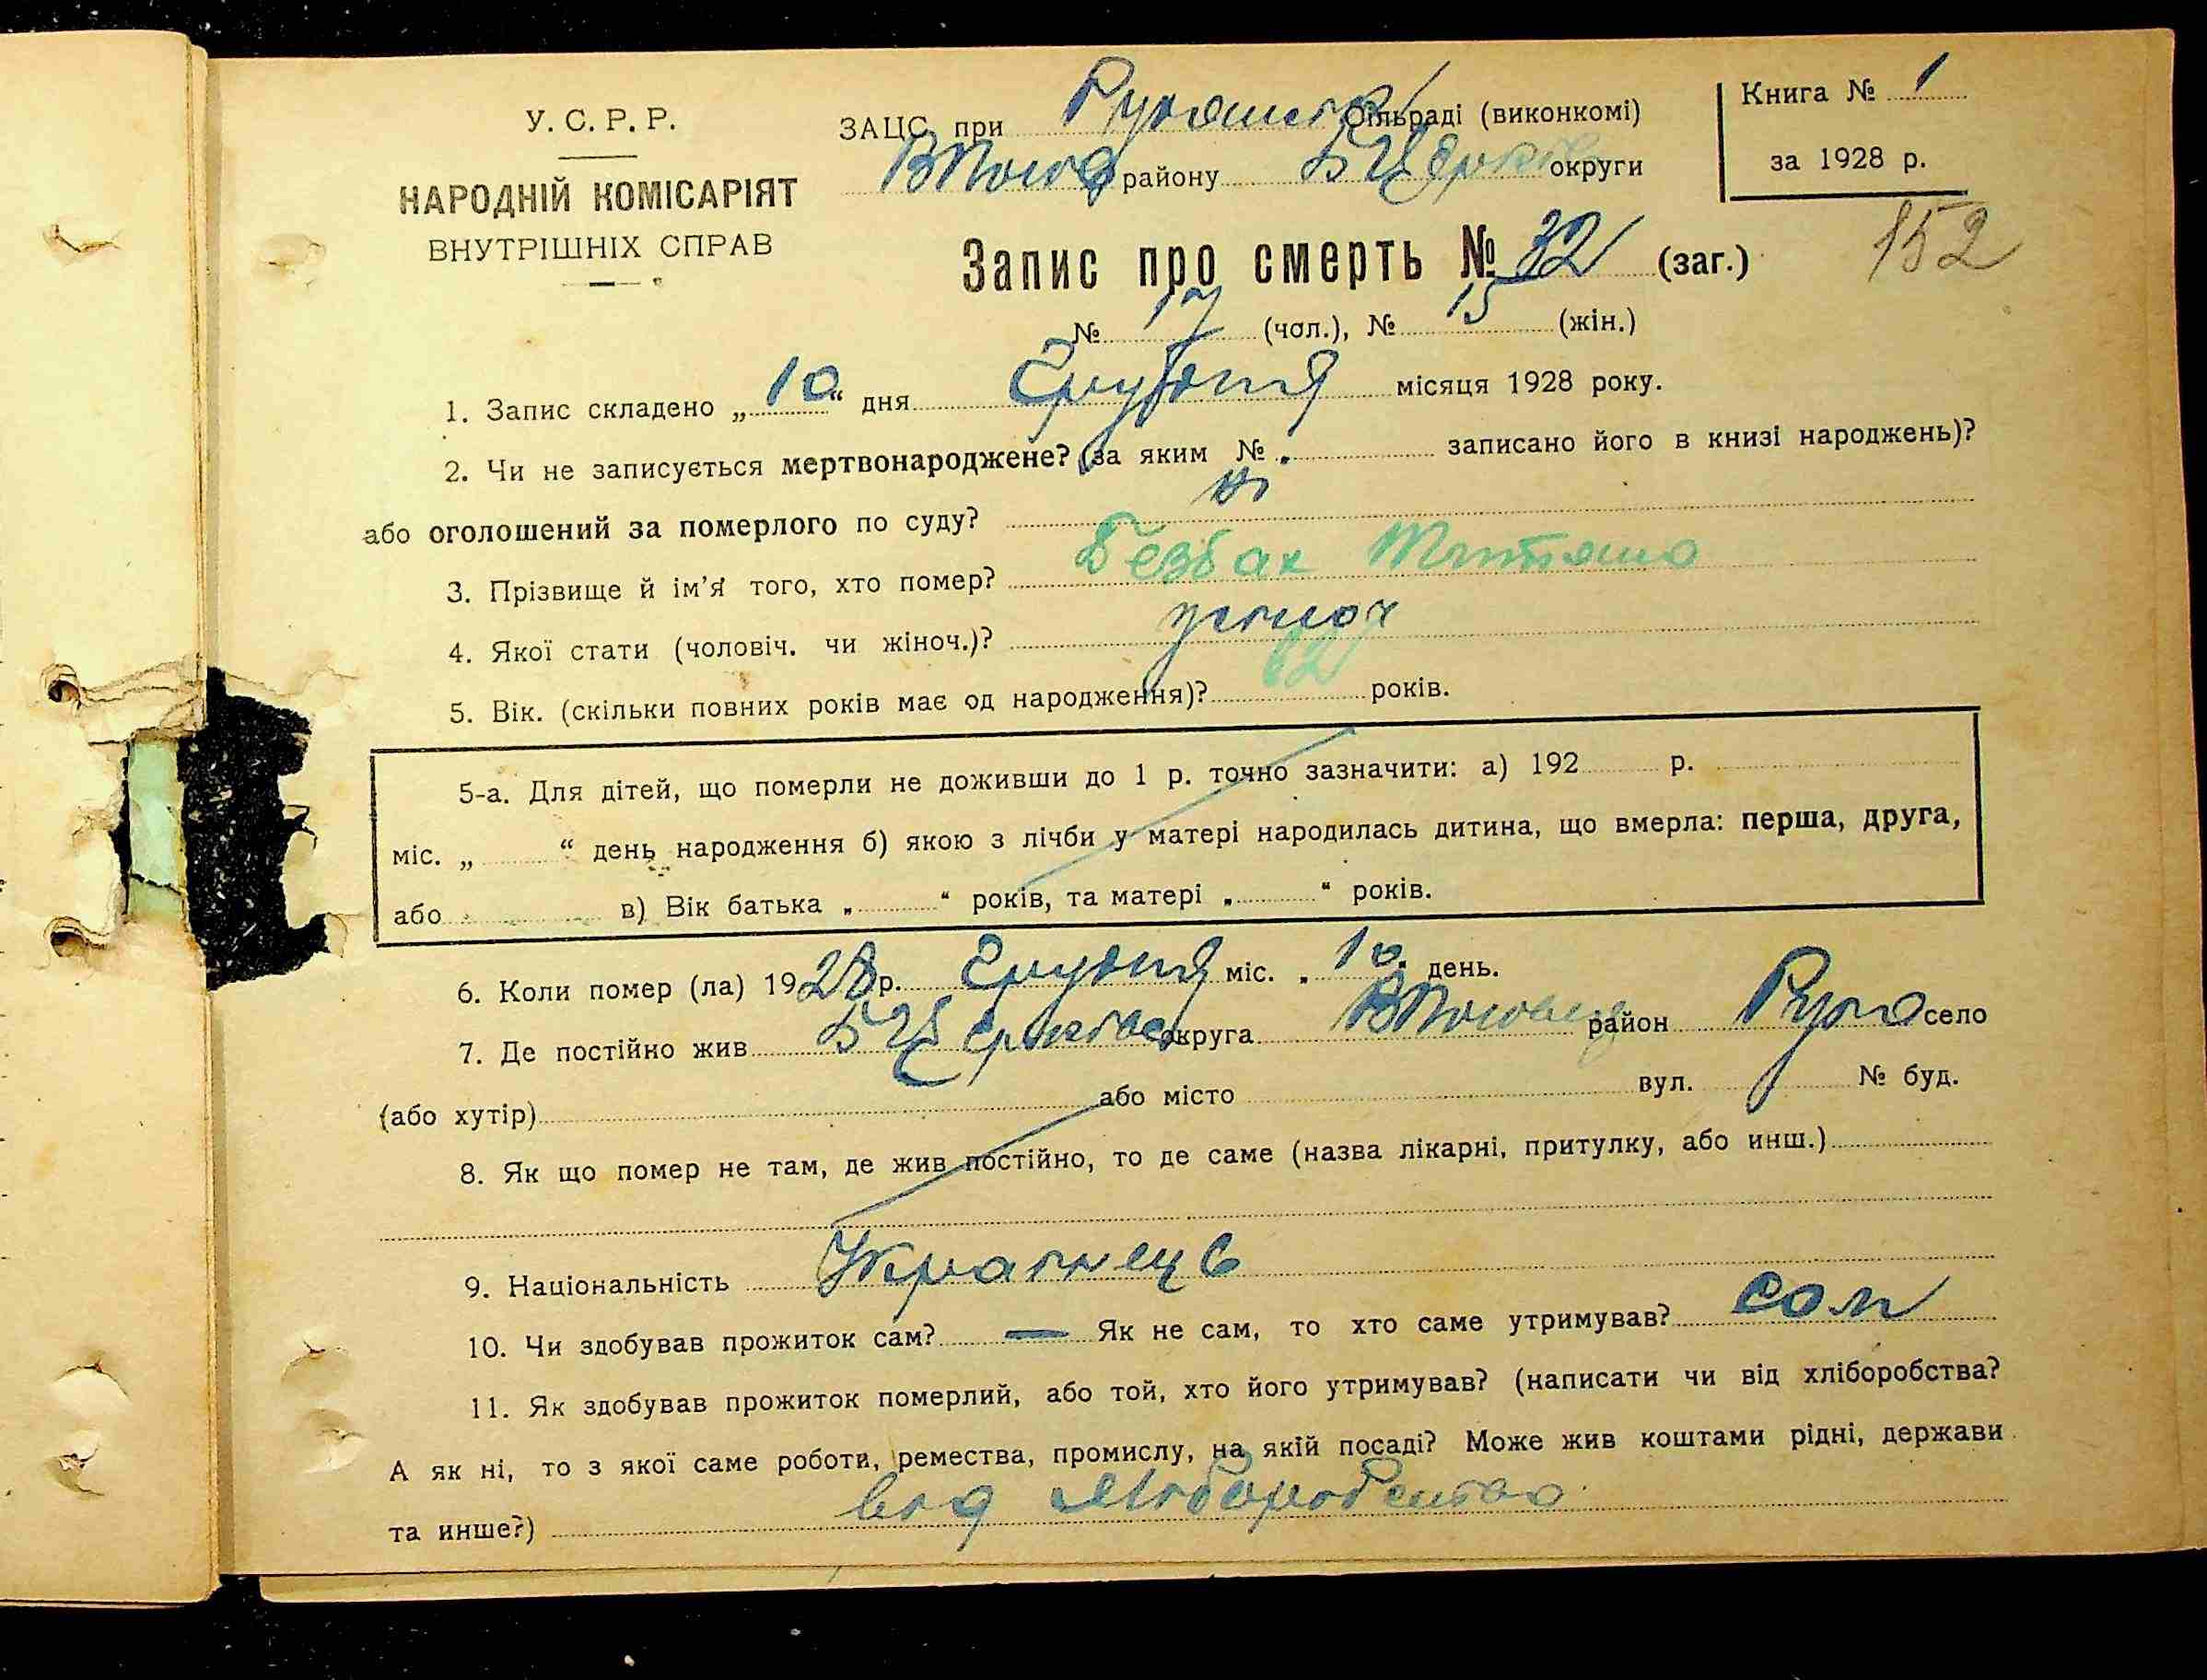 У. С. Р. Р.
НАРОДНІЙ КОМІСАРІЯТ
ВНУТРІШНІХ СПРАВ
ЗАЦС при сільраді (виконкомі)
району Б Церків округи
Книга № 1
за 1928 р.
152
Запис про смерть № 32 (заг.)
№ 17 (чол.), № 15 (жін.)
1. Запис складено „10“ дня Грудня місяця 1928 року.
2. Чи не записується мертвонароджене? (за яким № записано його в книзі народжень)?
або оголошений за померлого по суду? ні
3. Прізвище й ім’я того, хто помер? Безбах
4. Якої стати (чоловіч. чи жіноч.)? жіноч
5. Вік. (скільки повних років має од народження)? 62 років.
5-а. Для дітей, що померли не доживши до 1 р. точно зазначити: а) 192 р.
міс. „ “ день народження б) якою з лічби у матері народилась дитина, що вмерла: перша, друга,
або в) Вік батька „ “ років, та матері „ “ років.
6. Коли помер (ла) 1928 р. Грудня міс. „10“ день.
7. Де постійно жив Б Церківсь округа район Руда село
(або хутір) або місто вул. № буд.
8. Як що помер не там, де жив постійно, то де саме (назва лікарні, притулку, або инш.)
9. Національність Українець
10. Чи здобував прожиток сам? — Як не сам, то хто саме утримував? сам
11. Як здобував прожиток померлий, або той, хто його утримував? (написати чи від хліборобства?
А як ні, то з якої саме роботи, ремества, промислу, на якій посаді? Може жив коштами рідні, держави
та инше?) від хліборобства